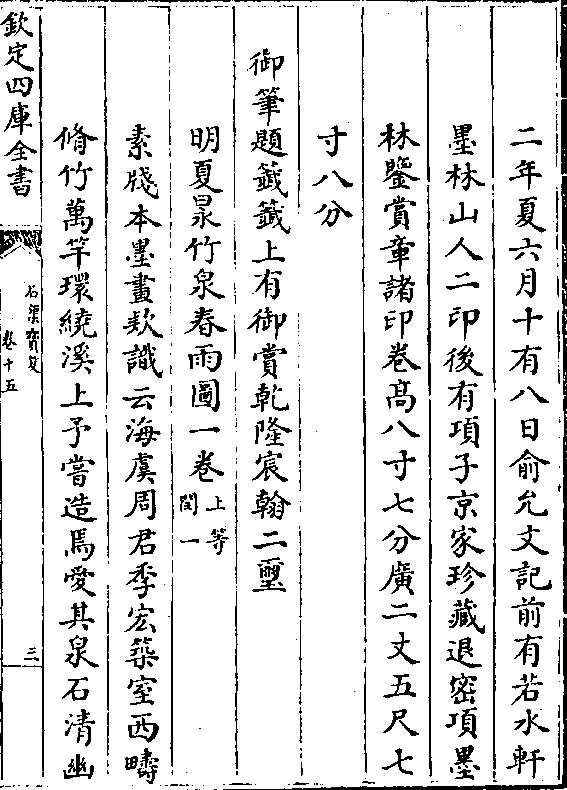 二年夏六月十有八日俞允文記前有若水軒
墨林山人二印後有項子京家珍藏退密項墨
林鑒賞章諸印卷髙八寸七分廣二丈五尺七
寸八分
御筆題籤籤上有御賞乾隆宸翰二璽
明夏㫤竹泉春雨圖一卷上等閏一
素牋本墨畫欵識云海虞周君季宏築室西疇
脩竹萬竿環繞溪上予嘗造焉愛其泉石清幽
欽定四庫全書
石渠寳笈
卷十五
三